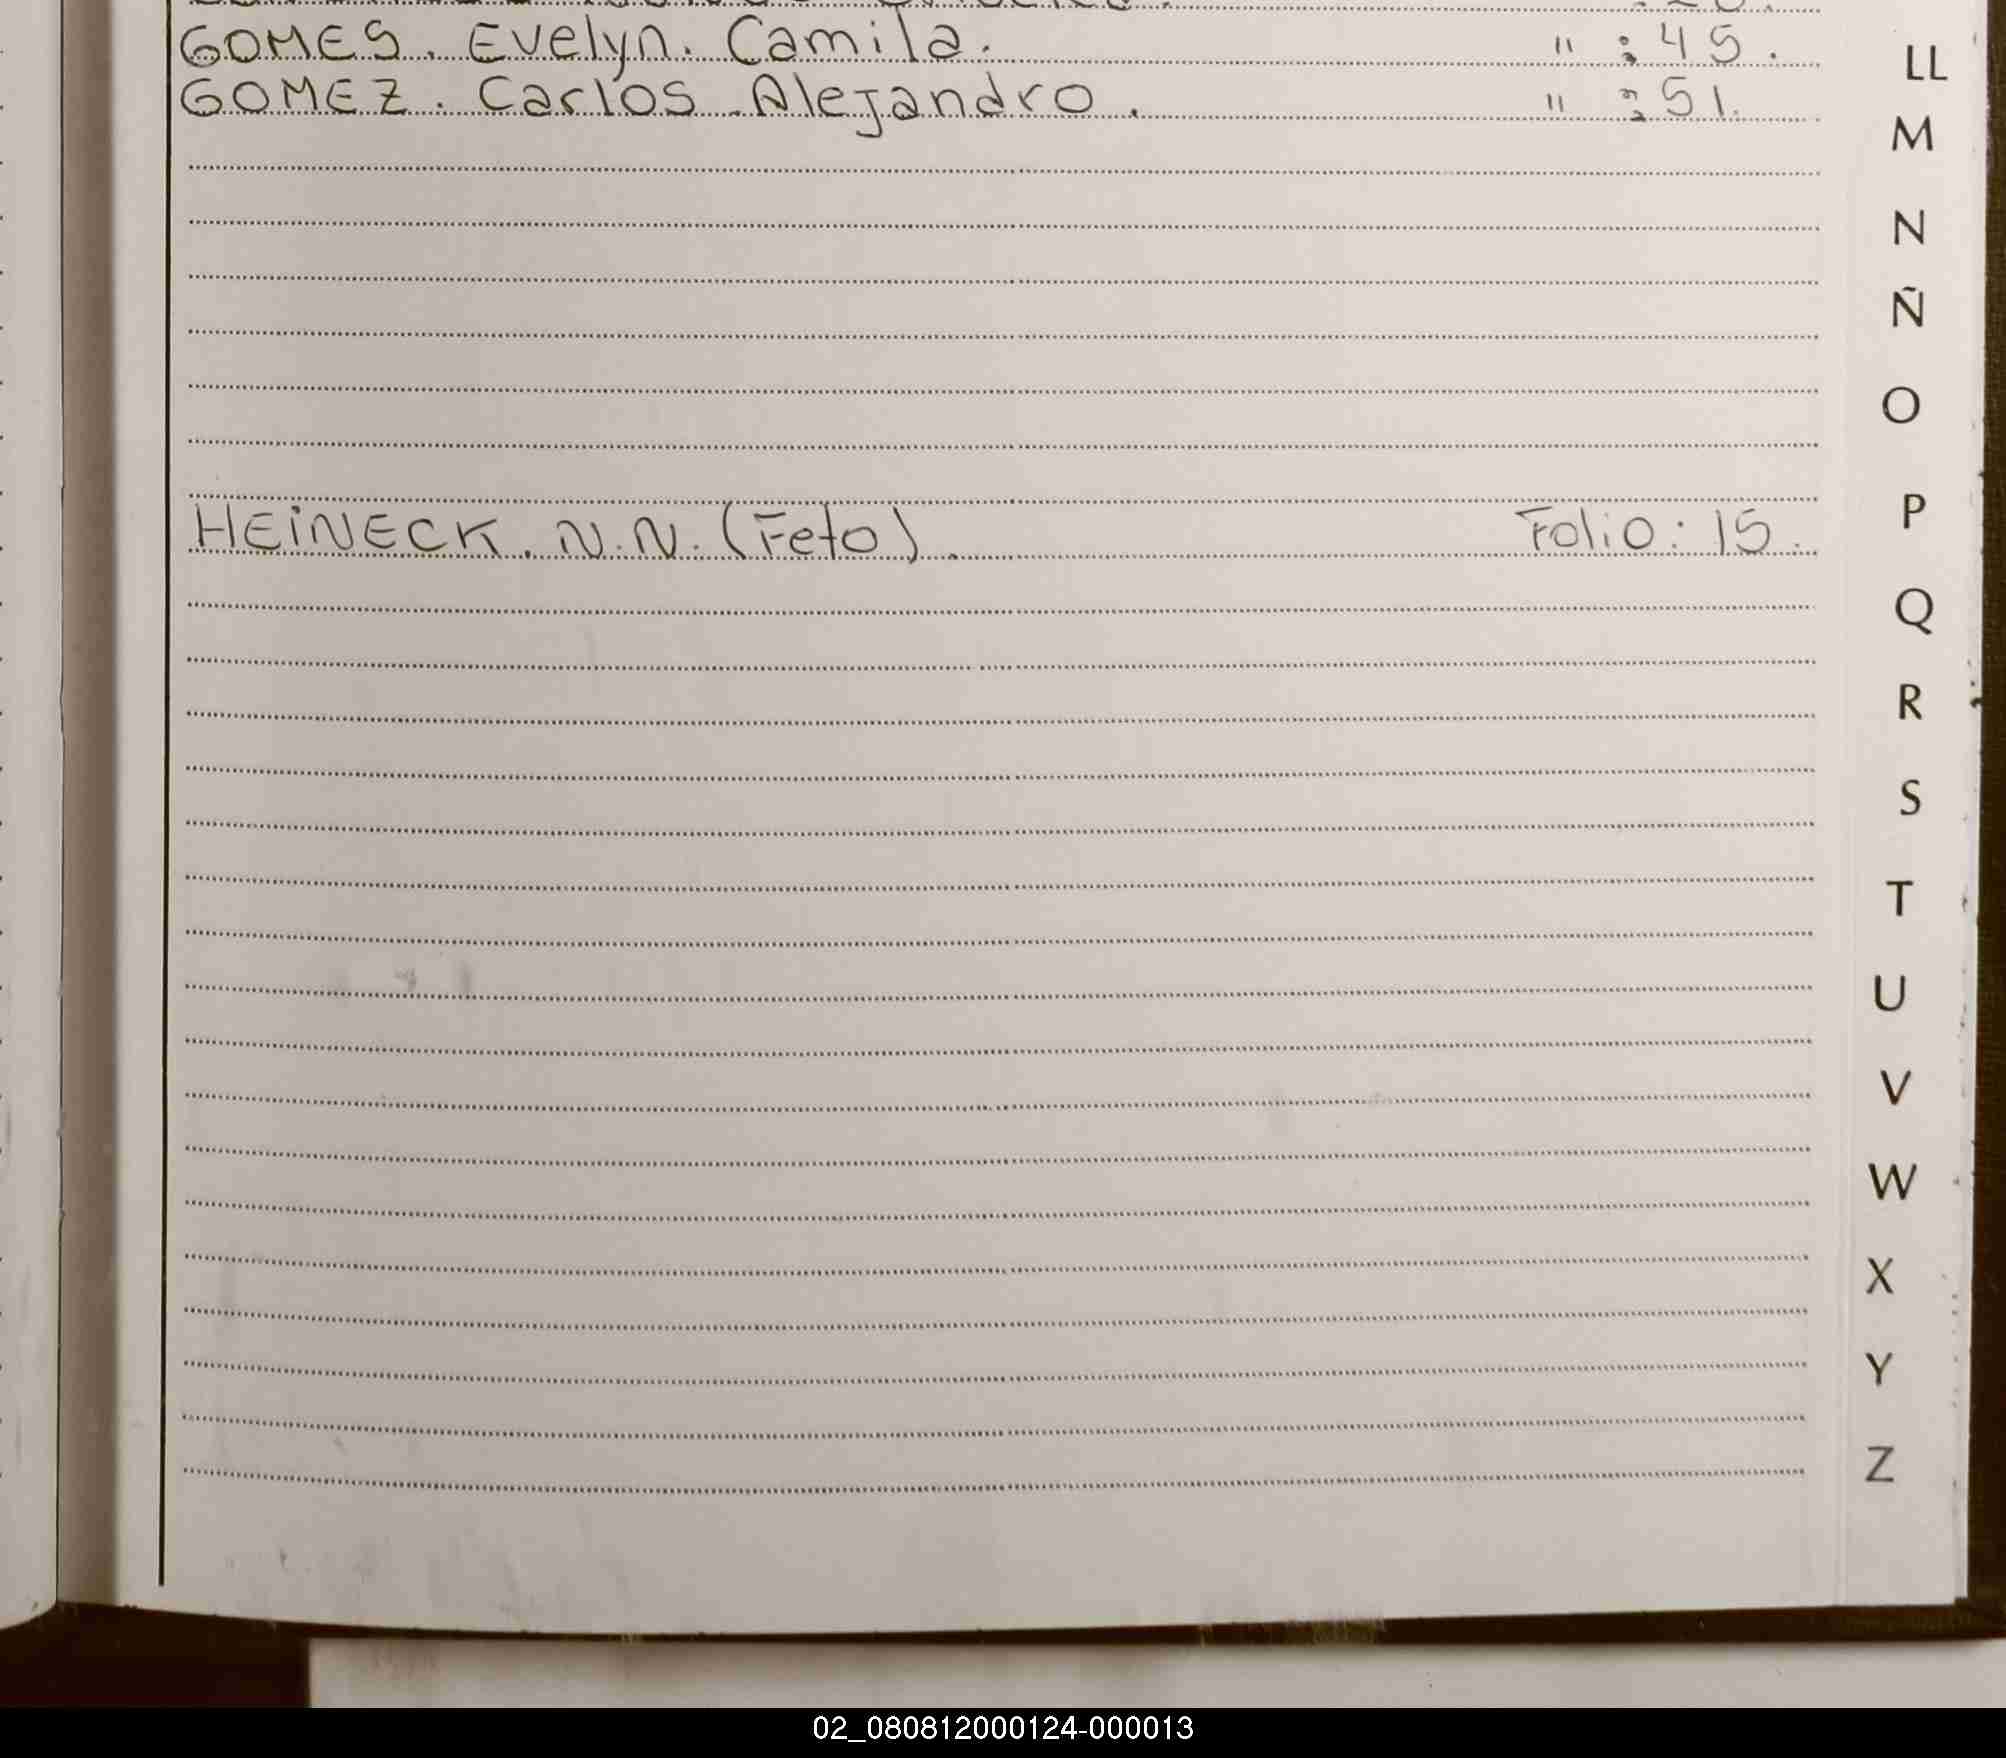 GOMES. Evelyn. Camila. " : 45.
GOMEZ. Carlos Alejandro. " : 51.
HEINECK. N.N. (Feto). Folio: 15.
LL
M
N
Ñ
O
P
Q
R
S
T
U
V
W
X
Y
Z
02_080812000124-000013